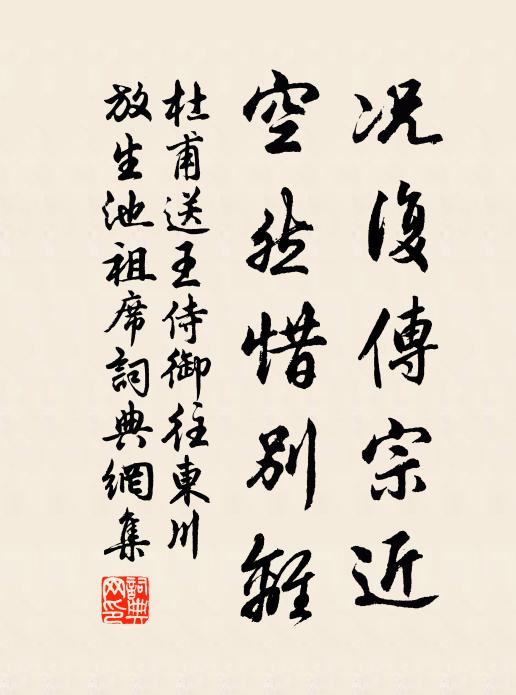 况復傳宗近
空然惜別離
杜甫送王侍御往東川
放生池祖席詞典網集
詞典網印